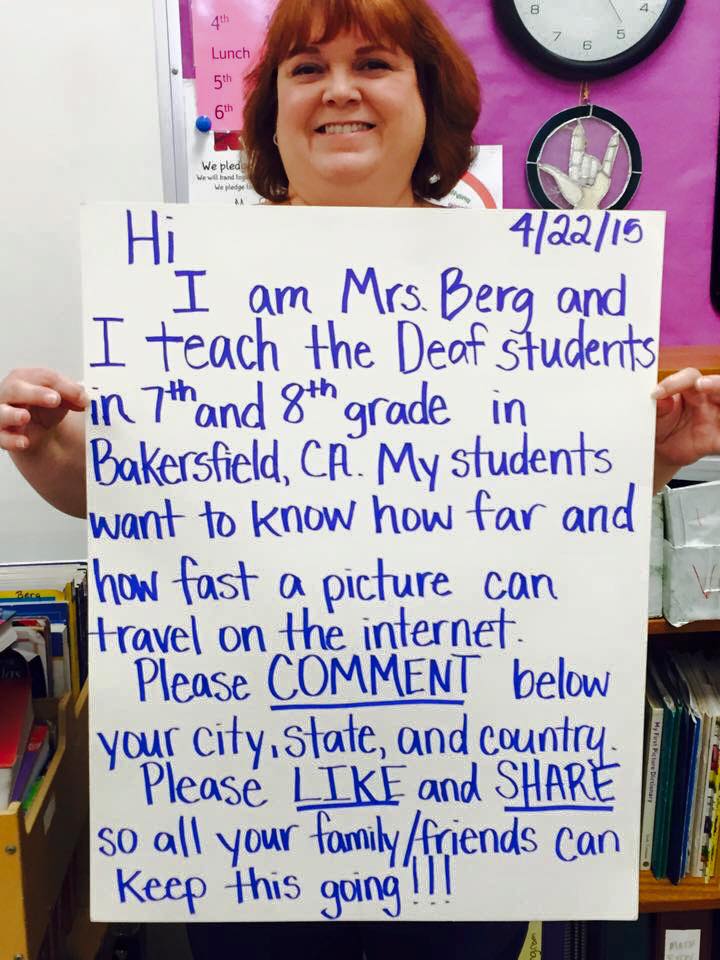 4th
Lunch
5th
6th
8
4
7
6
5
We pled
We pledge
Hi 4/22/15
I am Mrs. Berg and
I teach the Deaf students
in 7th and 8th grade in
Bakersfield, CA. My students
want to know how far and
how fast a picture can
travel on the internet.
Please COMMENT below
your city, state, and country.
Please LIKE and SHARE
so all your family/friends can
keep this going!!!
Berg
My First Picture Dictionary